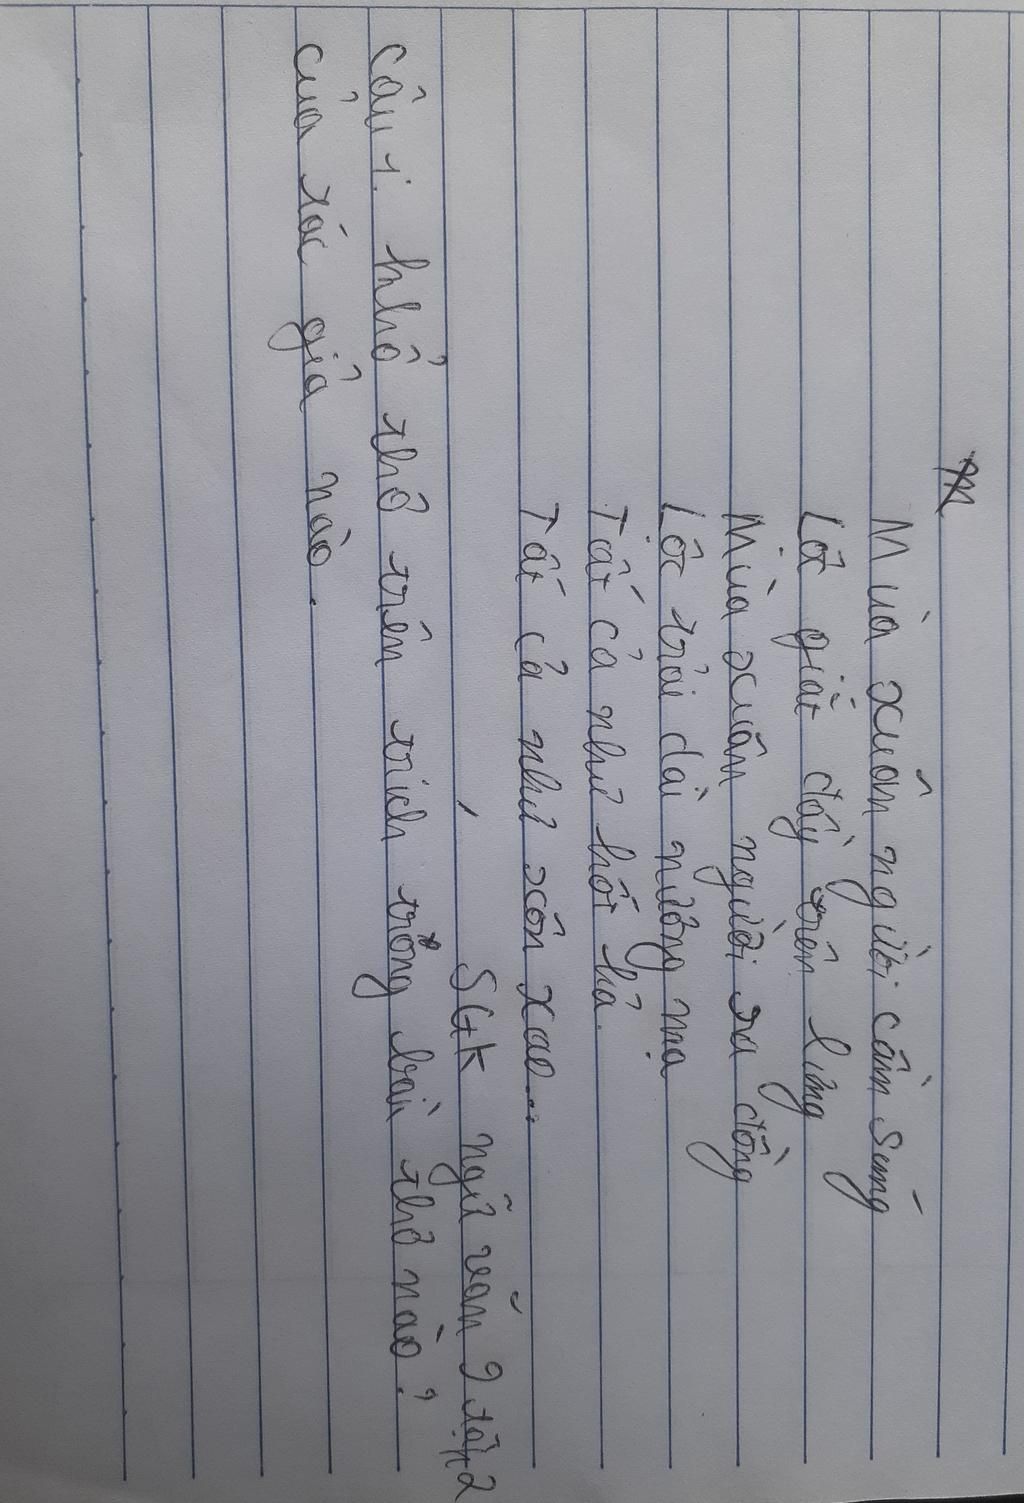 Mùa xuân người cầm súng
Lộc giắt đầy trên lưng
Mùa xuân người ra đồng
Lộc trải dài nương mạ
Tất cả như hối hả.
Tất cả như xôn xao...
SGK ngữ văn 9 tập 2
Câu 1. khổ thơ trên trích trong bài thơ nào?
của tác giả nào.